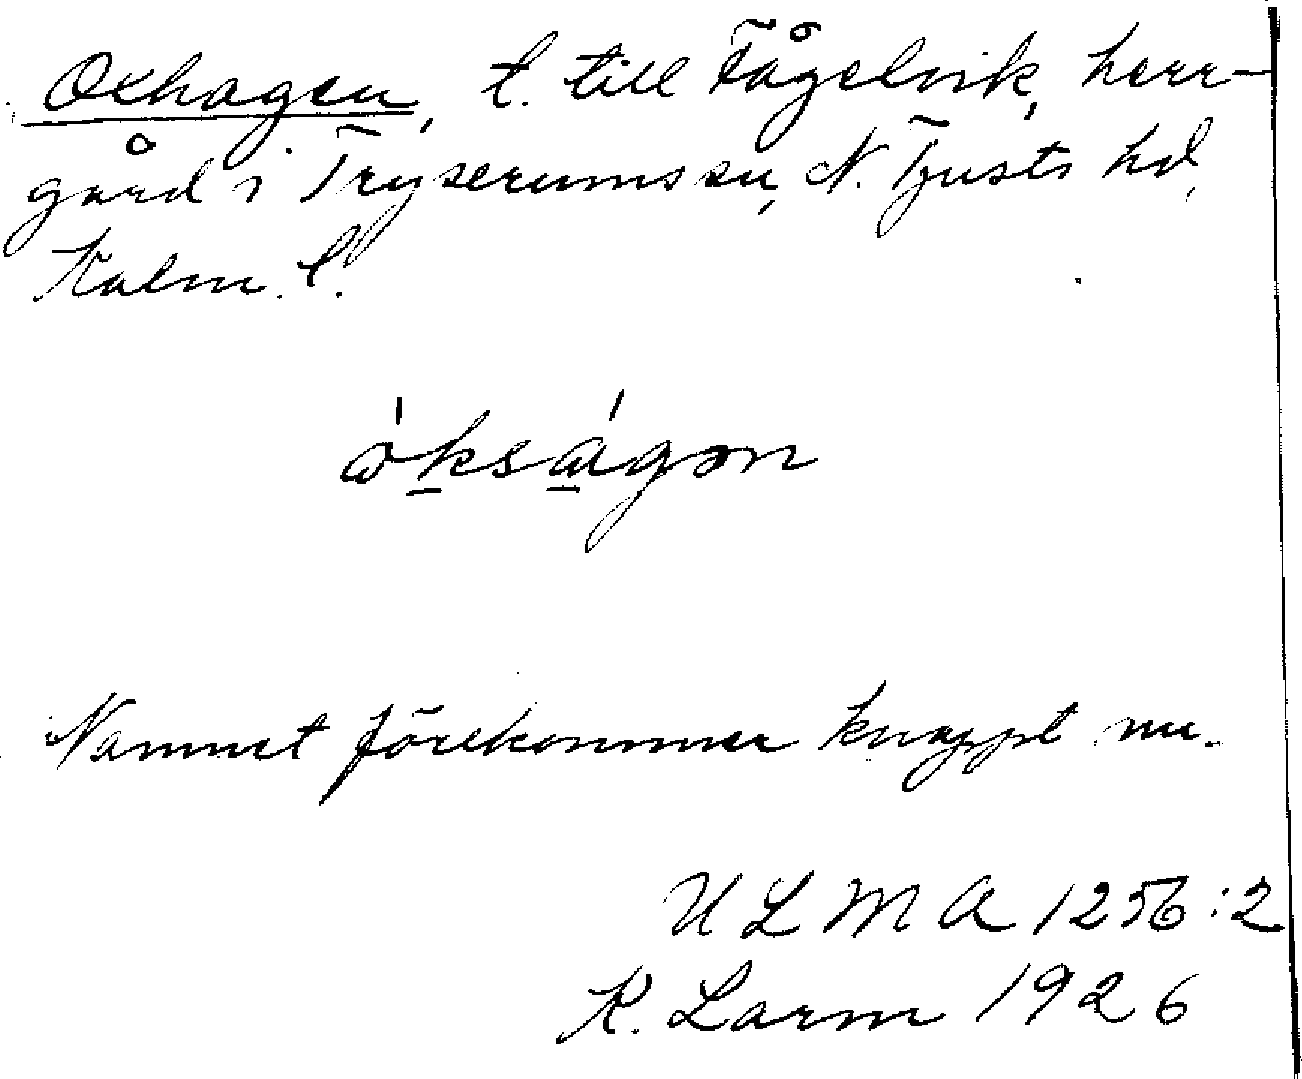 Oxhagen, t. till Fågelvik, herr-
gård i Tryserums sn, N. Tjusts hd,
Kalm. l.
Namnet förekommer knappt nu.
ULMA 1256:2
K. Larm 1926